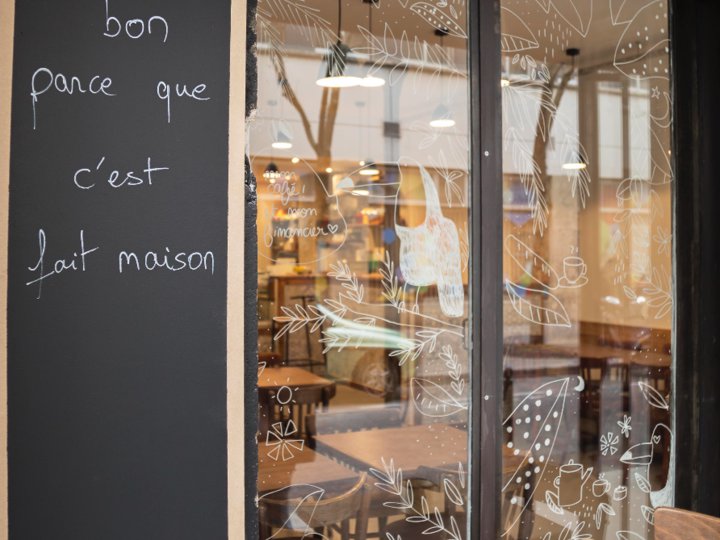 bon
parce que
c'est
fait maison
mon
café!
mon
financier